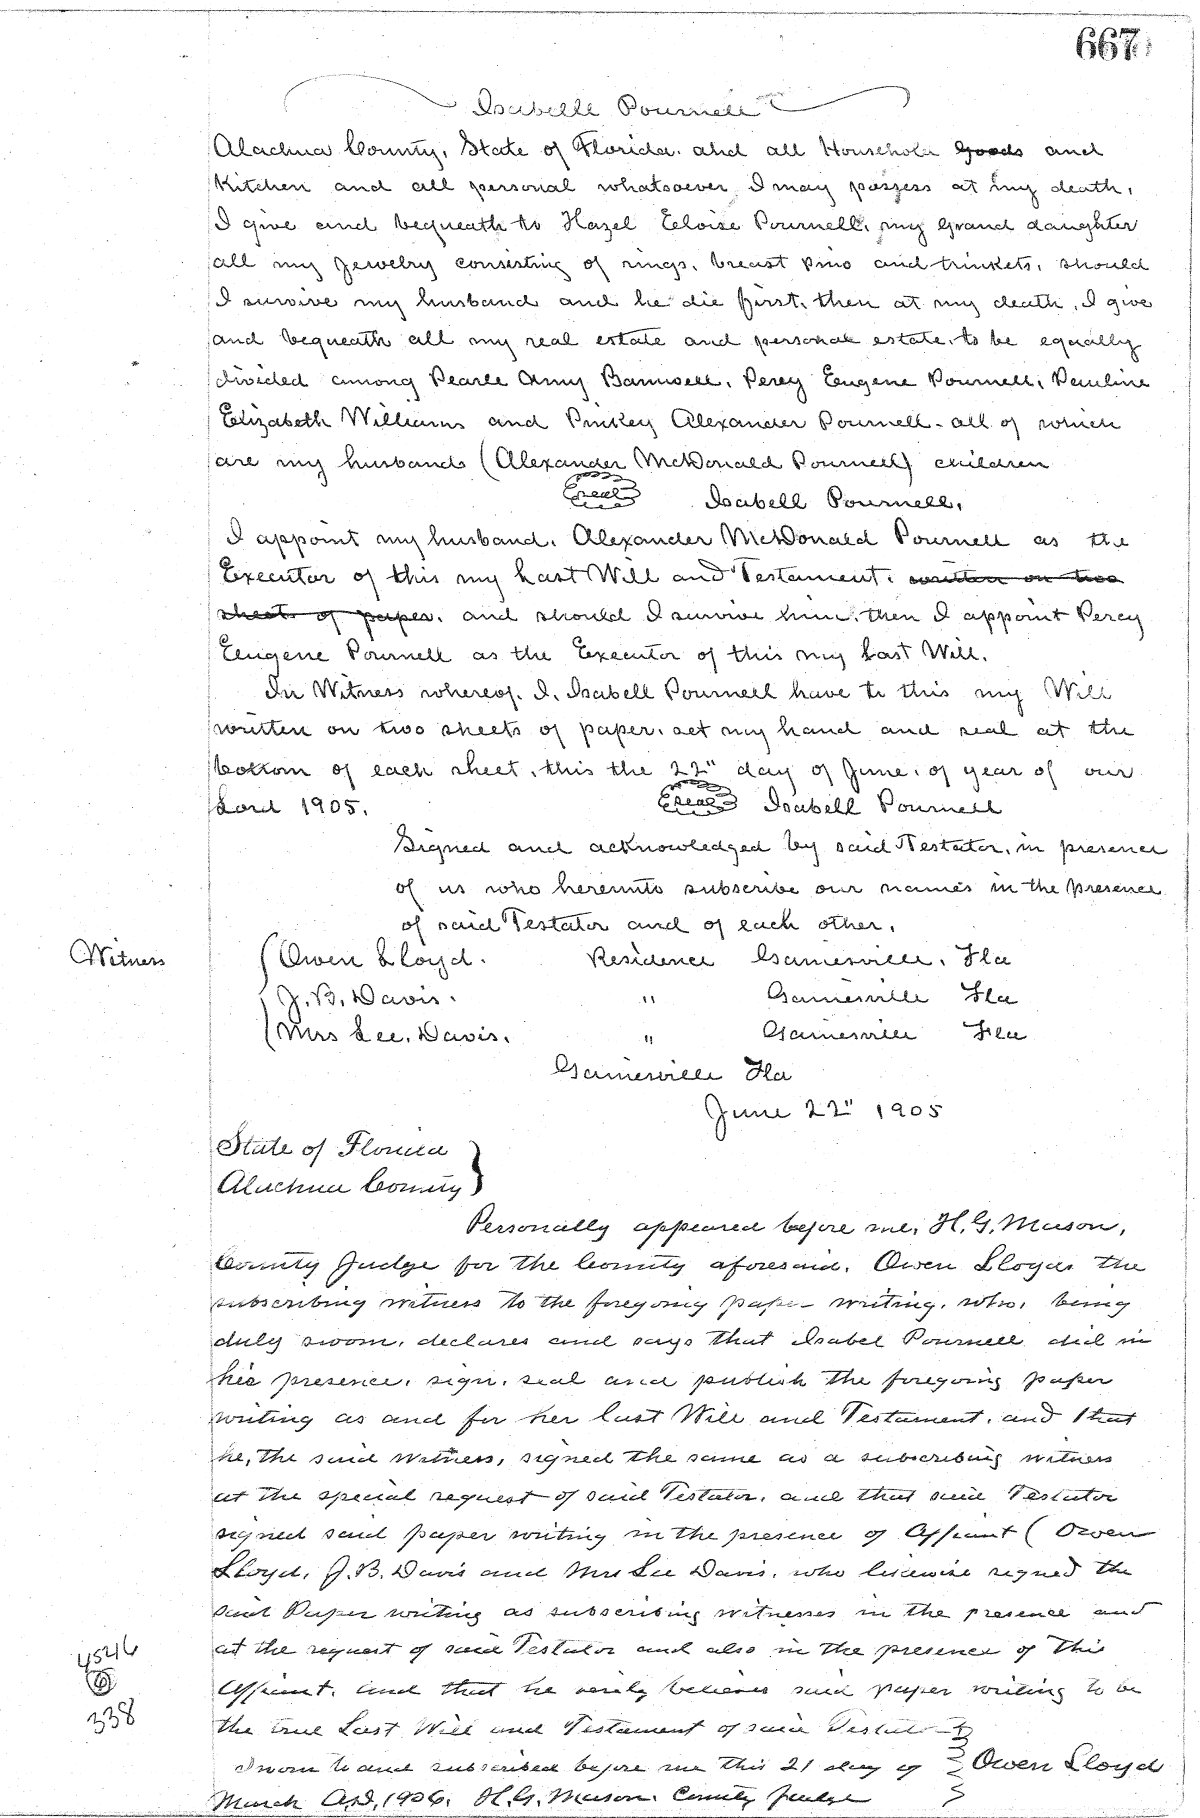 667
Isabelle Pournell
Alachua County, State of Florida. and all Household goods and
Kitchen and all personal whatsoever I may possess at my death,
I give and bequeath to Hazel Eloise Pournell, my Grand daughter
all my Jewelry consisting of rings, breast pins and trinkets, should
I survive my husband and he die first, then at my death, I give
and bequeath all my real estate and personal estate, to be equally
divided among Pearle Amy Barnwell, Percy Eugene Pournell, Pauline
Elizabeth Williams and Pinkey Alexander Pournell - all of which
are my husbands (Alexander McDonald Pournell) children
Seal Isabell Pournell,
I appoint my husband, Alexander McDonald Pournell as the
Executor of this my Last Will and Testament. written on two
sheets of paper, and should I survive him, then I appoint Percy
Eugene Pournell as the Executor of this my Last Will.
In Witness whereof, I, Isabell Pournell have to this my Will
written on two sheets of paper, set my hand and seal at the
bottom of each sheet, this the 22" day of June, of year of our
Lord 1905. Seal Isabell Pournell
Signed and acknowledged by said Testator, in presence
of us who hereunto subscribe our names in the presence
of said Testator and of each other.
Witness (Owen Lloyd. Residence Gainesville, Fla
(J. B. Davis. " Gainesville Fla
(Mrs Lee. Davis. " Gainesville Fla
Gainesville Fla
June 22" 1905
State of Florida }
Alachua County }
Personally appeared before me, H. G. Mason,
County Judge for the County aforesaid, Owen Lloyd the
subscribing witness to the foregoing paper writing, who, being
duly sworn, declares and says that Isabel Pournell did in
his presence, sign, seal and publish the foregoing paper
writing as and for her last Will and Testament, and that
he, the said witness, signed the same as a subscribing witness
at the special request of said Testator, and that said Testator
signed said paper writing in the presence of Affiant (Owen
Lloyd, J. B. Davis and Mrs Lee Davis, who likewise signed the
said Paper writing as subscribing witnesses in the presence and
at the request of said Testator and also in the presence of this
Affiant. and that he verily believes said paper writing to be
the true Last Will and Testament of said Testator
Sworn to and subscribed before me this 21 day of Owen Lloyd
March A.D, 1906. H. G. Mason. County Judge
4546
6
338